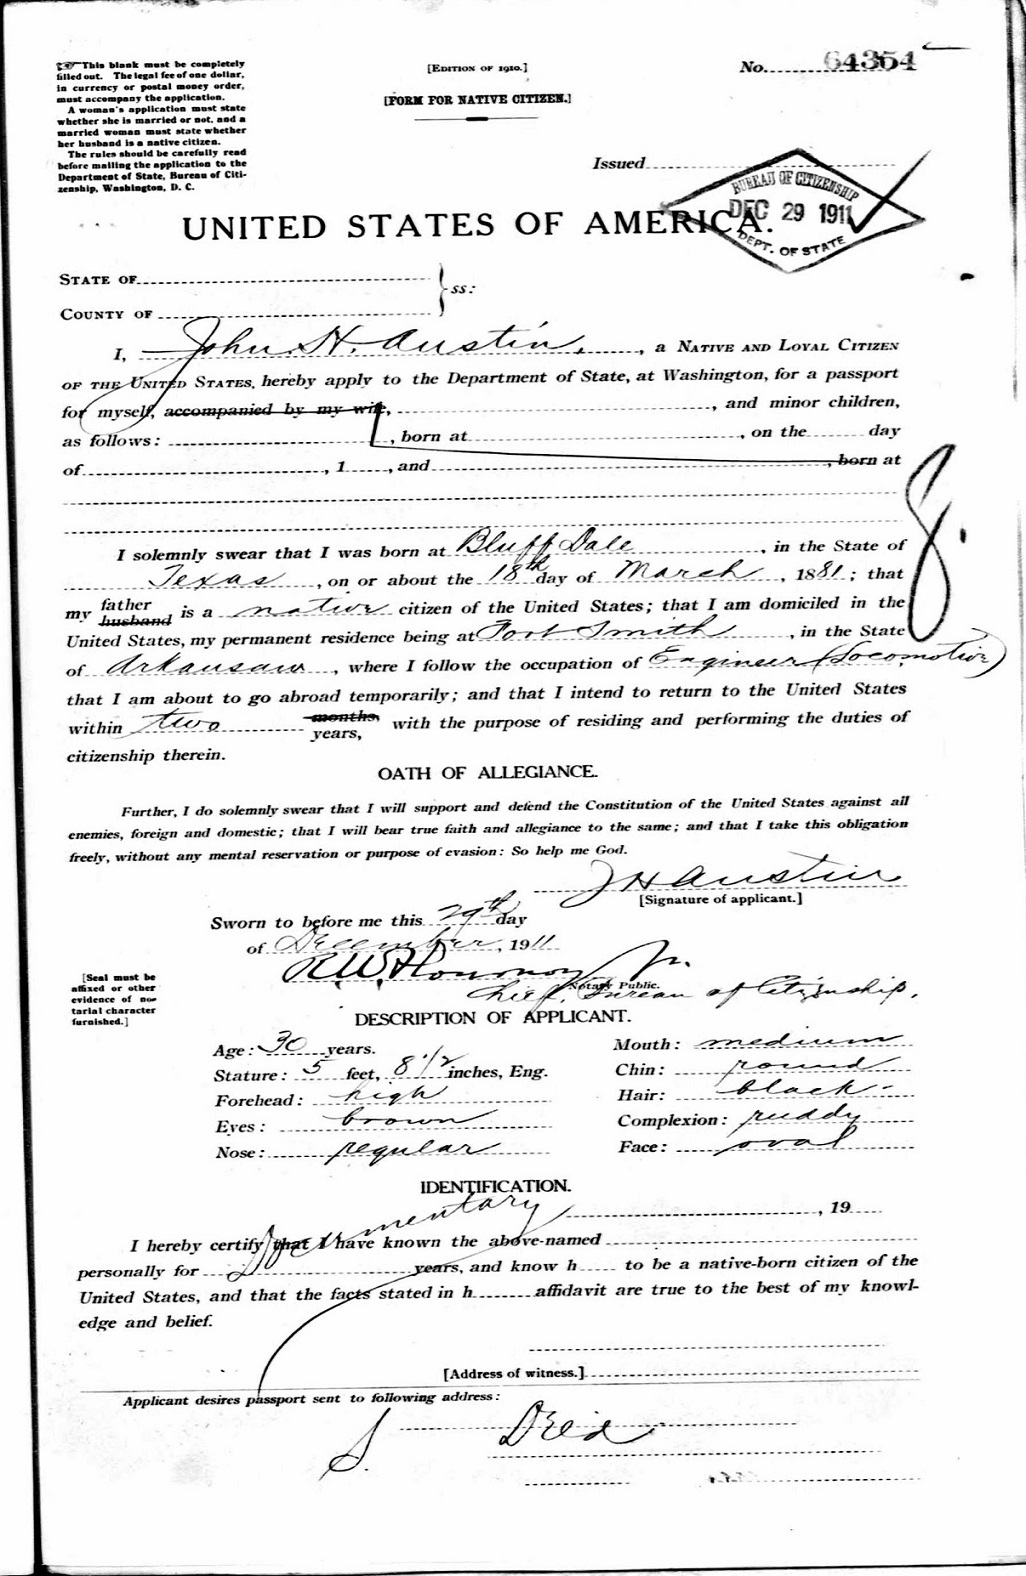 ☞ This blank must be completely
filled out. The legal fee of one dollar,
in currency or postal money order,
must accompany the application.
A woman's application must state
whether she is married or not, and a
married woman must state whether
her husband is a native citizen.
The rules should be carefully read
before mailing the application to the
Department of State, Bureau of Citi-
zenship, Washington, D. C.
[EDITION OF 1910.]
[FORM FOR NATIVE CITIZEN.]
No. 64354
Issued
BUREAU OF CITIZENSHIP
DEC 29 1911
DEPT. OF STATE
UNITED STATES OF AMERICA.
STATE OF
COUNTY OF
ss:
I, John H. Austin, a NATIVE AND LOYAL CITIZEN
OF THE UNITED STATES, hereby apply to the Department of State, at Washington, for a passport
for myself, accompanied by my wife, , and minor children,
as follows: , born at , on the day
of , 1 , and , born at
8.
I solemnly swear that I was born at Bluff Dale , in the State of
Texas , on or about the 18th day of March , 1881; that
my father husband is a native citizen of the United States; that I am domiciled in the
United States, my permanent residence being at Fort Smith , in the State
of Arkansaw , where I follow the occupation of Engineer (Locomotive)
that I am about to go abroad temporarily; and that I intend to return to the United States
within two months years, with the purpose of residing and performing the duties of
citizenship therein.
OATH OF ALLEGIANCE.
Further, I do solemnly swear that I will support and defend the Constitution of the United States against all
enemies, foreign and domestic; that I will bear true faith and allegiance to the same; and that I take this obligation
freely, without any mental reservation or purpose of evasion: So help me God.
J H Austin
[Signature of applicant.]
Sworn to before me this 29th day
of December, 1911
R.W. Jr.
Notary Public.
Chief, Bureau of Citizenship.
[Seal must be
affixed or other
evidence of no-
tarial character
furnished.]
DESCRIPTION OF APPLICANT.
Age: 30 years.
Stature: 5 feet, 8 1/2 inches, Eng.
Forehead: high
Eyes: brown
Nose: regular
Mouth: medium
Chin: round
Hair: black
Complexion: ruddy
Face: oval
IDENTIFICATION.
Documentary
, 19
I hereby certify that I have known the above-named
personally for years, and know h to be a native-born citizen of the
United States, and that the facts stated in h affidavit are true to the best of my knowl-
edge and belief.
[Address of witness.]
Applicant desires passport sent to following address: